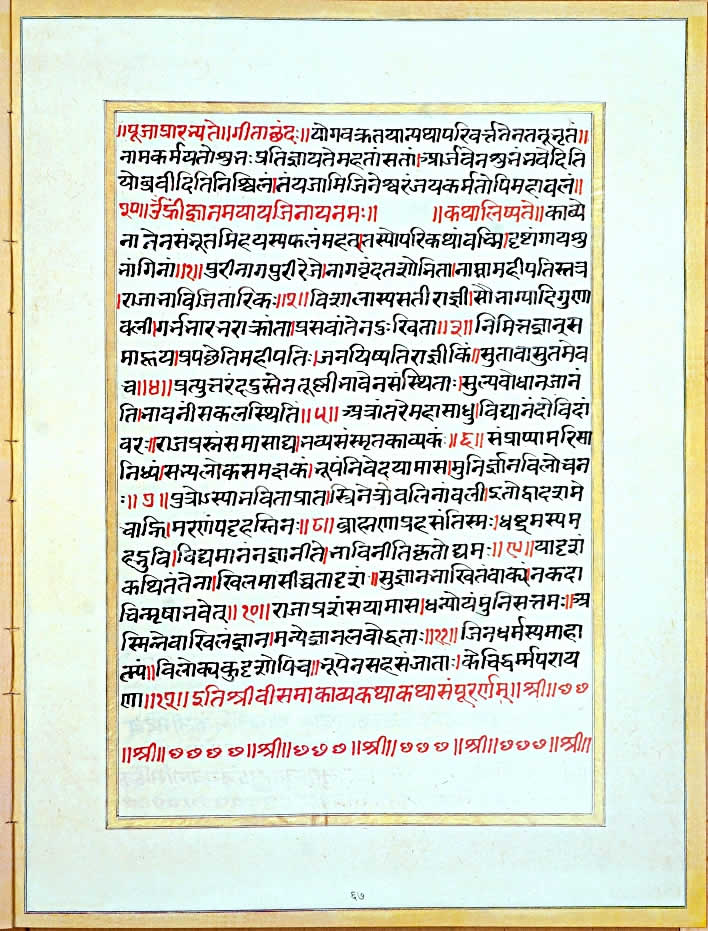 ॥पूजाप्रारभ्यते॥गीताछंदः॥योगवक्रतयान्यथापरिवर्त्तनेनतनूनृतं॥
नामकर्मयतोशुभःप्रतिज्ञायतेमहतांसतां।आर्जवेनशुभंभवेदिति
योब्रवीदितिनिश्चिलं।तंयजामिजिनेश्वरंजयकर्मतोपिमहाबलं॥
२०॥उँह्रींज्ञानमयायजिनायनमः॥ ॥कथालिष्यते॥काव्ये
नानेनसंभूतमिहयस्यफलंमहत्।तस्योपरिकथांवच्मि।दृष्टांगायशु
भांगिनां॥१॥पुरीनागपुरीरेजे।नागवृंदतशोभिता।नाम्नामहीपतिस्तत्र
।राजानाविजितारिकः॥२॥विशालास्यसतीराज्ञी।सौभाग्यादिगुणा
वली।गर्भभारभराक्रांता।प्रसवांतेनदुःखिता॥३॥निमित्तज्ञानृस
माहूय।प्रपछेतिमहीपतिः।जनयिष्यतिराज्ञीकिं।सुतांवासुतमेव
च॥४॥प्रत्युत्तरंददुस्तेन।तूष्णीभावेनसंस्थिताः।सुत्यबोधानजानं
ति।भावनीसकलस्थिति॥५॥अत्रांतरेमहासाधु।विद्यानंदोविदां
वरः॥राजप्रस्नंसमासाद्य।नव्यसंस्मृतकाव्यकं॥६॥संप्राप्यामरिसा
निध्यं।सत्यलोकसमक्षकं।नूपंनिवेदयामास।मुनिर्ज्ञानविलोचन
ः॥७॥पुत्रोऽस्यानविताप्रात।स्त्रिनेत्रोबलिनांबली।इतोद्वादशमे
वाह्नि।मरणंपट्टहस्तिनः॥८॥ब्राह्मणाप्रहसंतिस्मः।धृष्टमस्यम
हद्भुवि।विद्यमानंनजानीते।भाविनीतिकृतोद्यमः॥९॥यादृशं
कथितंतेना।खिलमासीच्चतादृशं।सुज्ञानभाखितंवाक्यं।नकदा
चिन्मृषाभवेत्॥१०॥राजाप्रशंसयामास।धन्योयंमुनिसत्तमः।अ
स्मिन्नेवाखिलंज्ञानं।मन्येज्ञानलवोद्धताः॥११॥जिनधर्मस्यमाहा
त्म्यं॥विलोक्यकुदृशोपिच॥नूपेनसहसंजाताः।केचिद्धर्म्मपराय
णा॥१२॥इतिश्रीवीसमाकाव्यकथाकथासंपूरर्णम्॥श्री॥७७
॥श्री॥७७७७॥श्री॥७७७॥श्री॥७७७॥श्री॥७७७॥श्री॥
६७